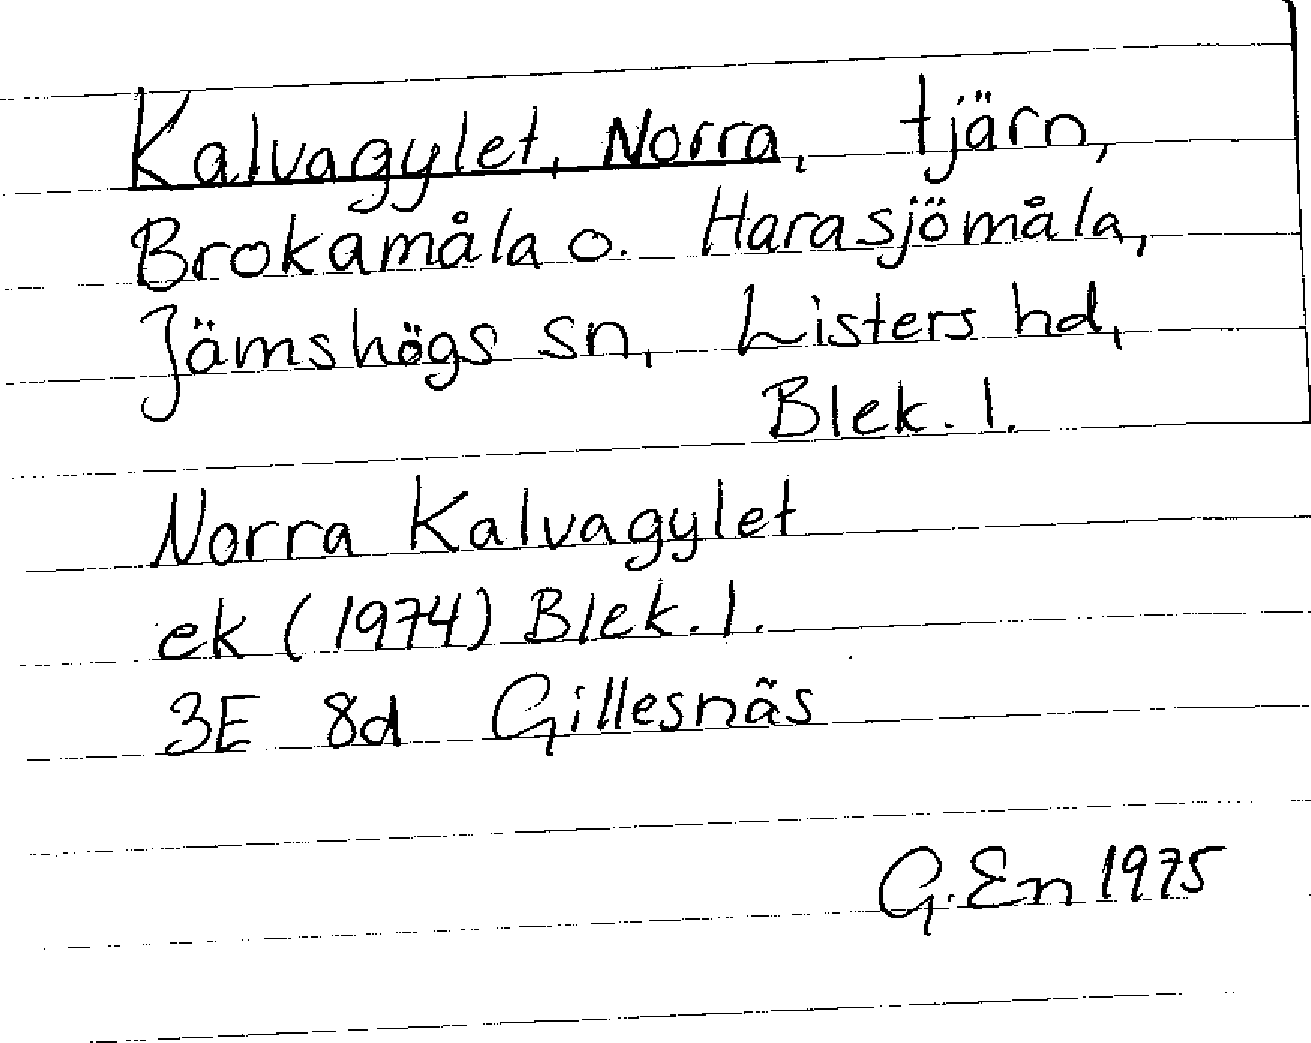 Kalvagylet, Norra, tjärn,
Brokamåla o. Harasjömåla,
Jämshögs sn, Listers hd,
Blek. l.
Norra Kalvagylet
ek (1974) Blek. l.
3E 8d Gillesnäs
G. En 1975